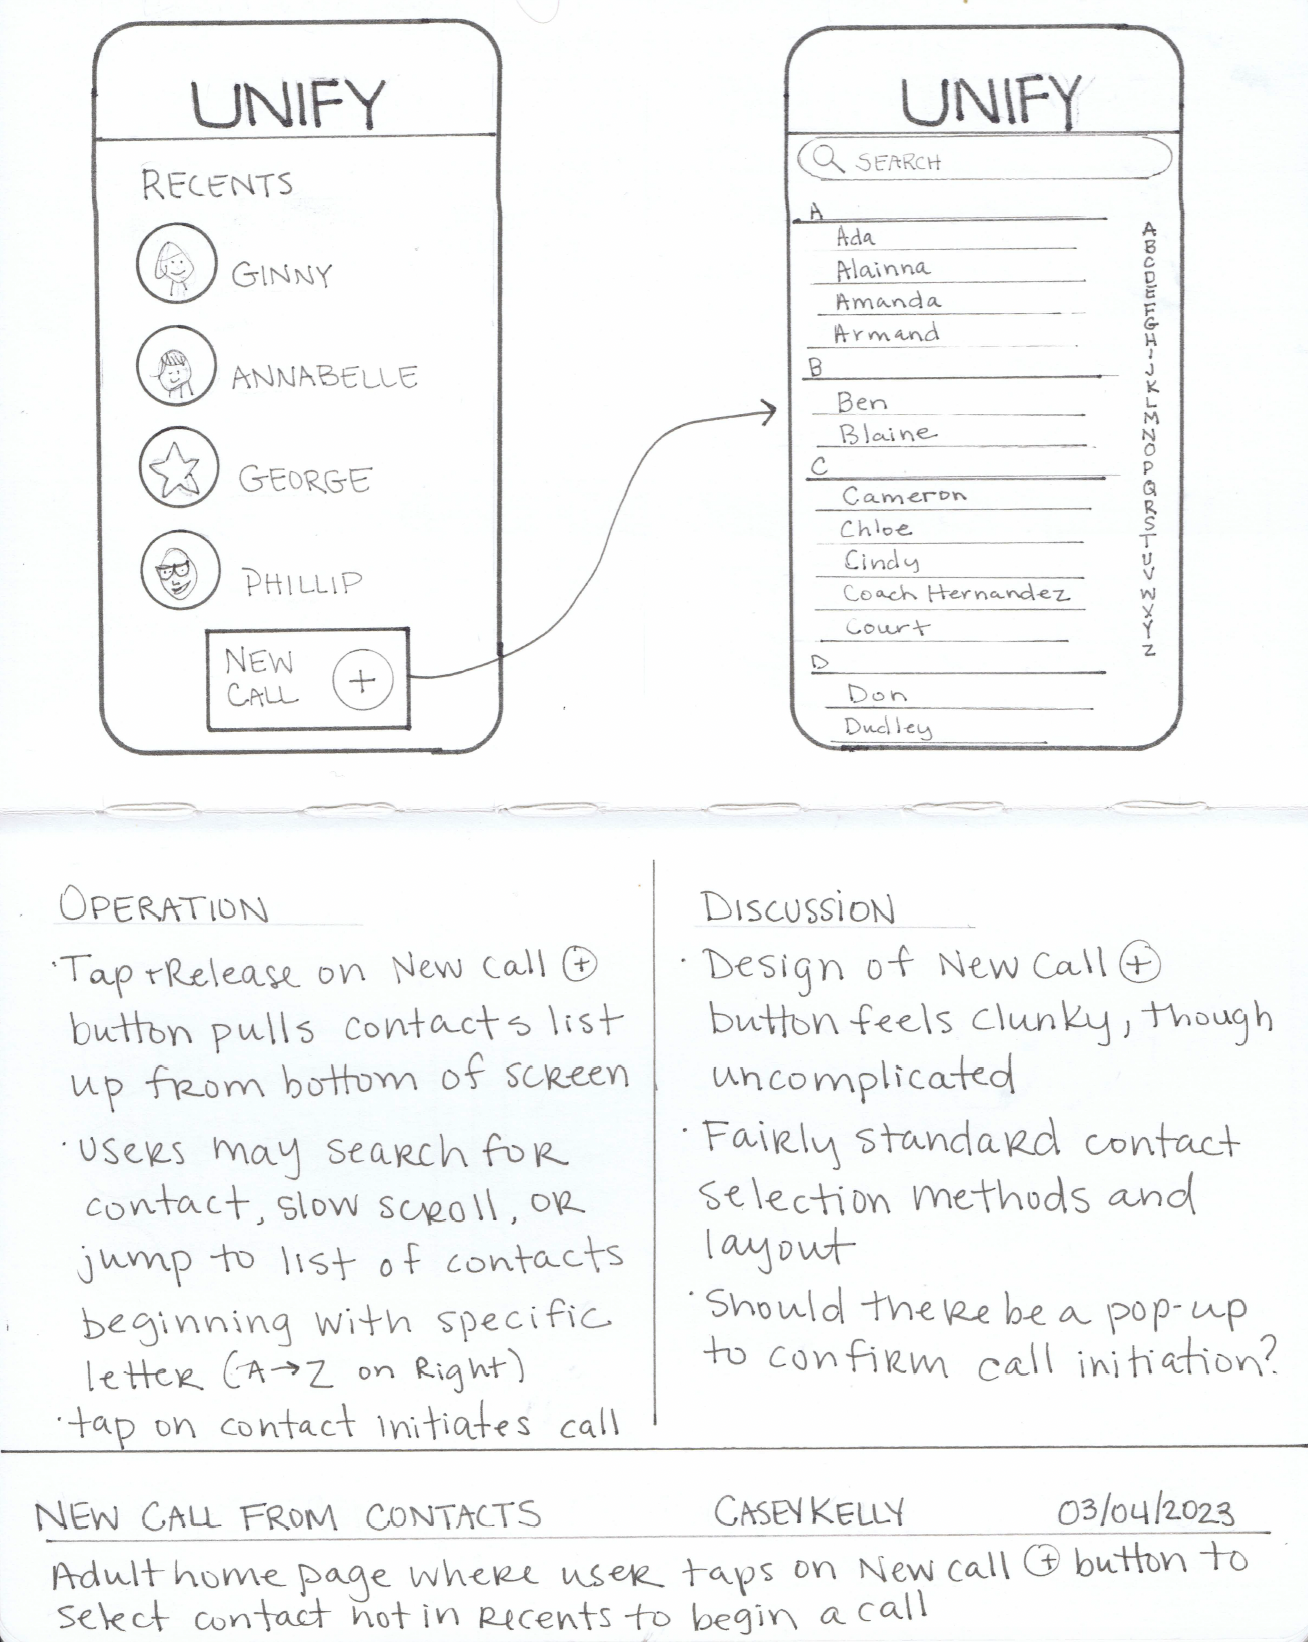 UNIFY
RECENTS
GINNY
ANNABELLE
GEORGE
PHILLIP
NEW
CALL +
UNIFY
SEARCH
A
Ada
Alainna
Amanda
Armand
B
Ben
Blaine
C
Cameron
Chloe
Cindy
Coach Hernandez
Court
D
Don
Dudley
A
B
C
D
E
F
G
H
I
J
K
L
M
N
O
P
Q
R
S
T
U
V
W
X
Y
Z
OPERATION
· Tap + Release on New Call +
button pulls contacts list
up from bottom of screen
· Users may search for
contact, slow scroll, or
jump to list of contacts
beginning with specific
letter (A→Z on Right)
· tap on contact initiates call
DISCUSSION
· Design of New Call +
button feels clunky, though
uncomplicated
· Fairly standard contact
selection methods and
layout
· Should there be a pop-up
to confirm call initiation?
NEW CALL FROM CONTACTS CASEY KELLY 03/04/2023
Adult home page where user taps on New call + button to
select contact not in recents to begin a call